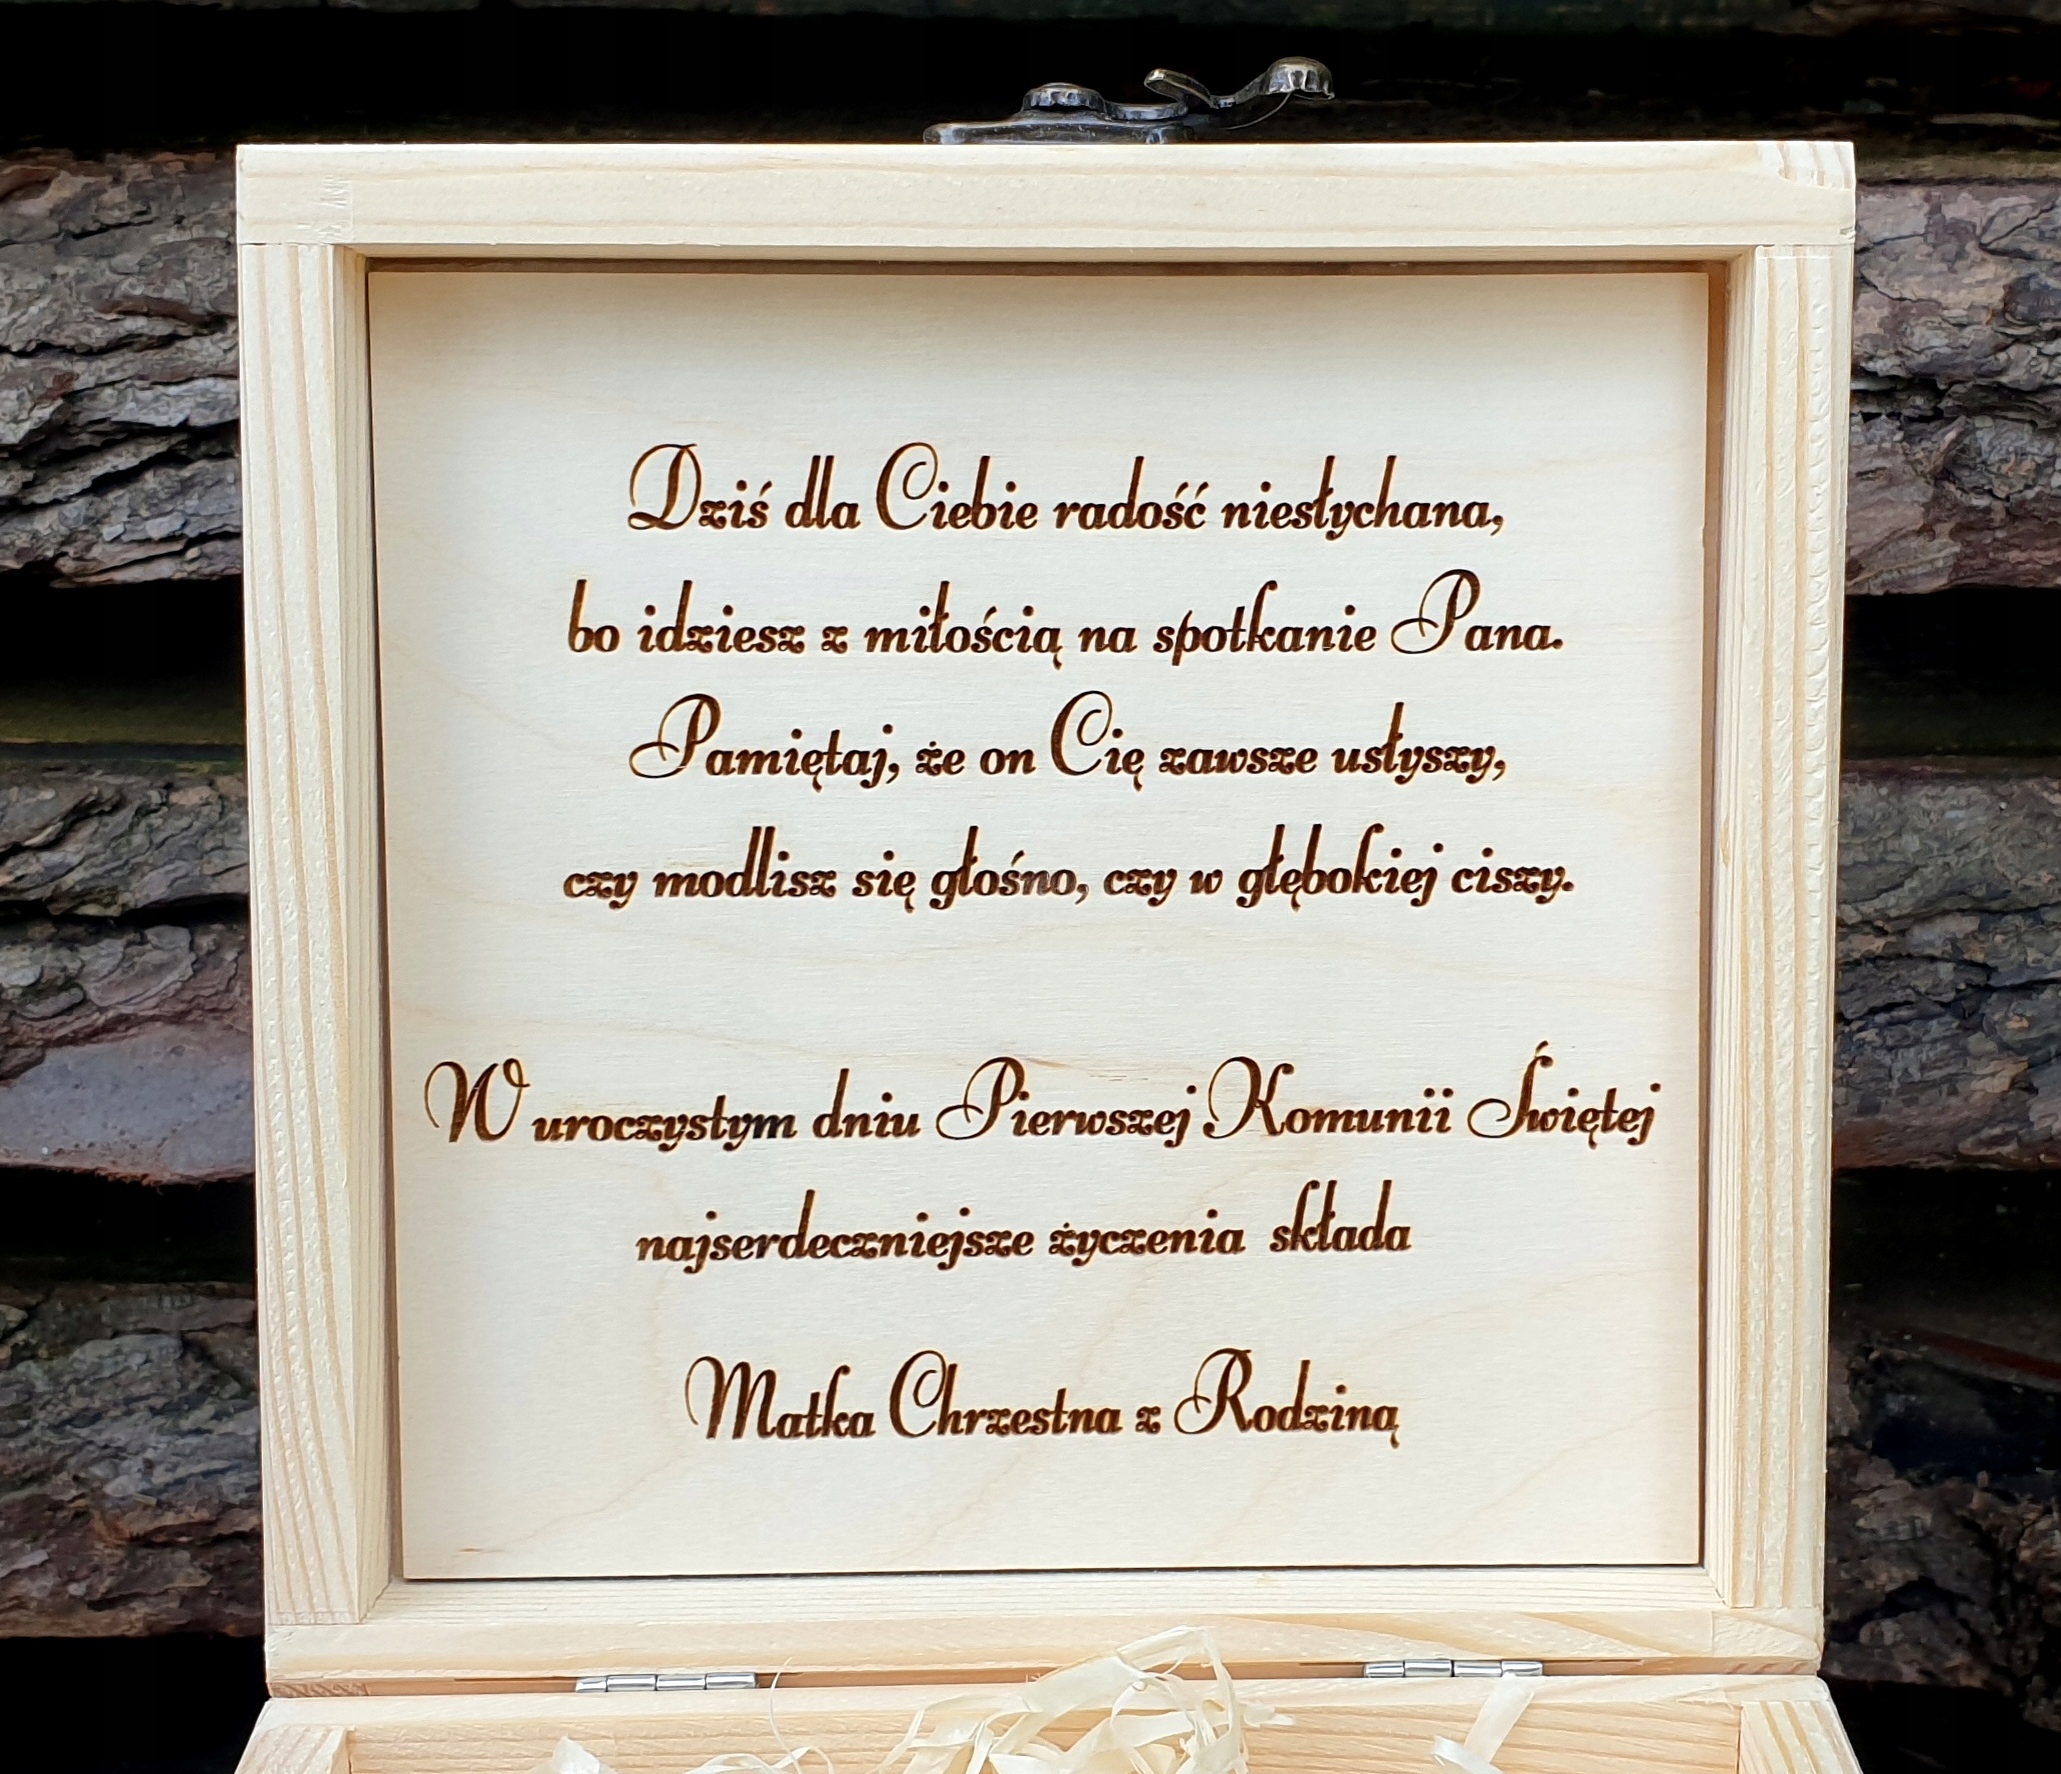 Dziś dla Ciebie radość niesłychana,
bo idziesz z miłością na spotkanie Pana.
Pamiętaj, że on Cię zawsze usłyszy,
czy modlisz się głośno, czy w głębokiej ciszy.
W uroczystym dniu Pierwszej Komunii Świętej
najserdeczniejsze życzenia składa
Matka Chrzestna z Rodziną